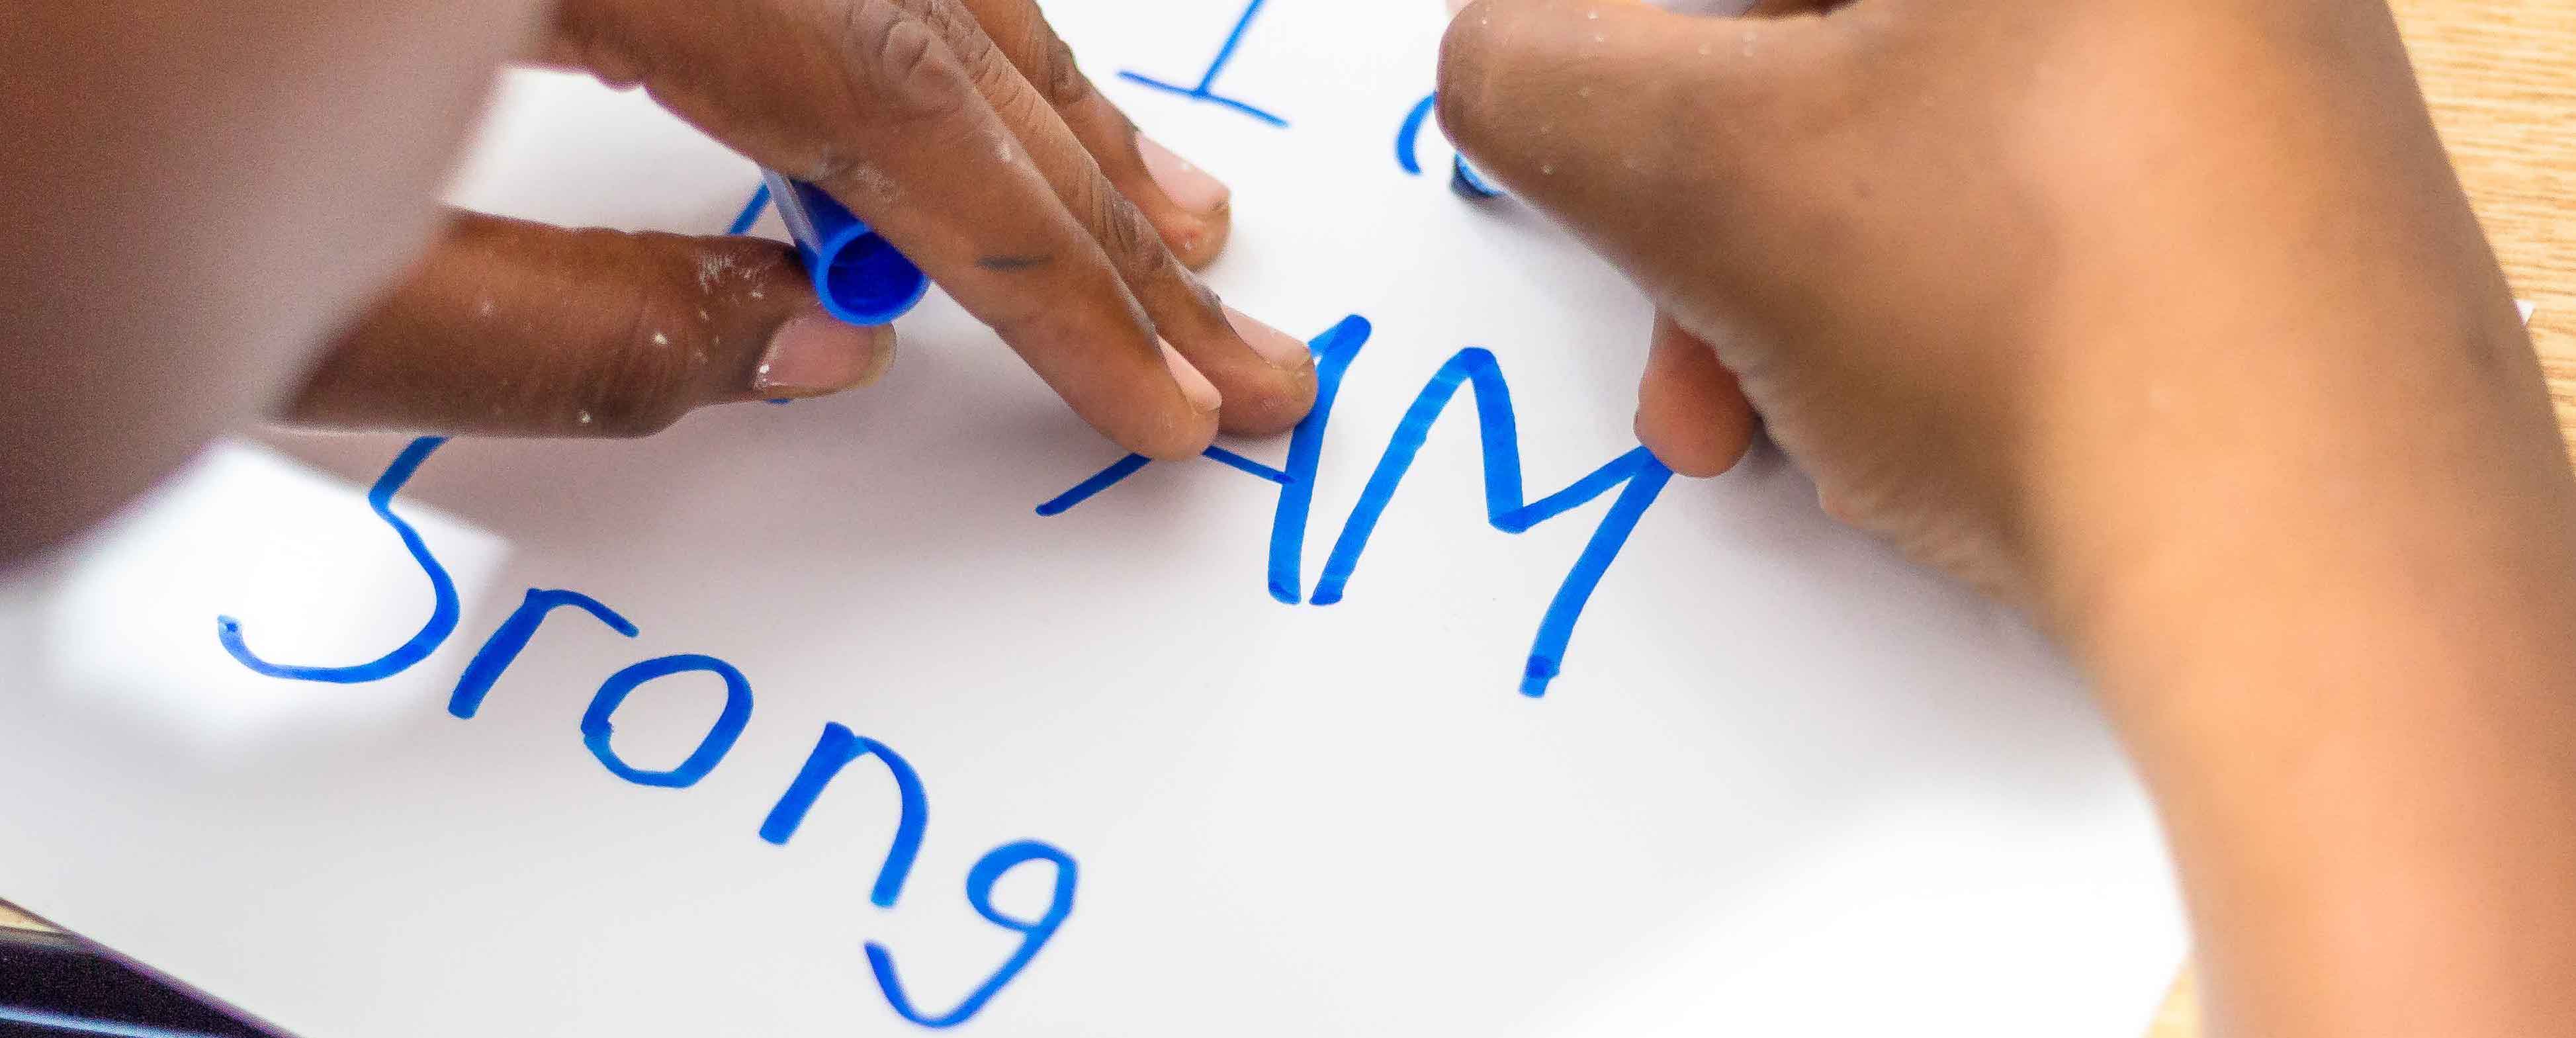 I
AM
Srong